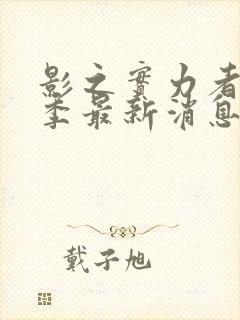 影之實力者
季最新消息
戴子旭